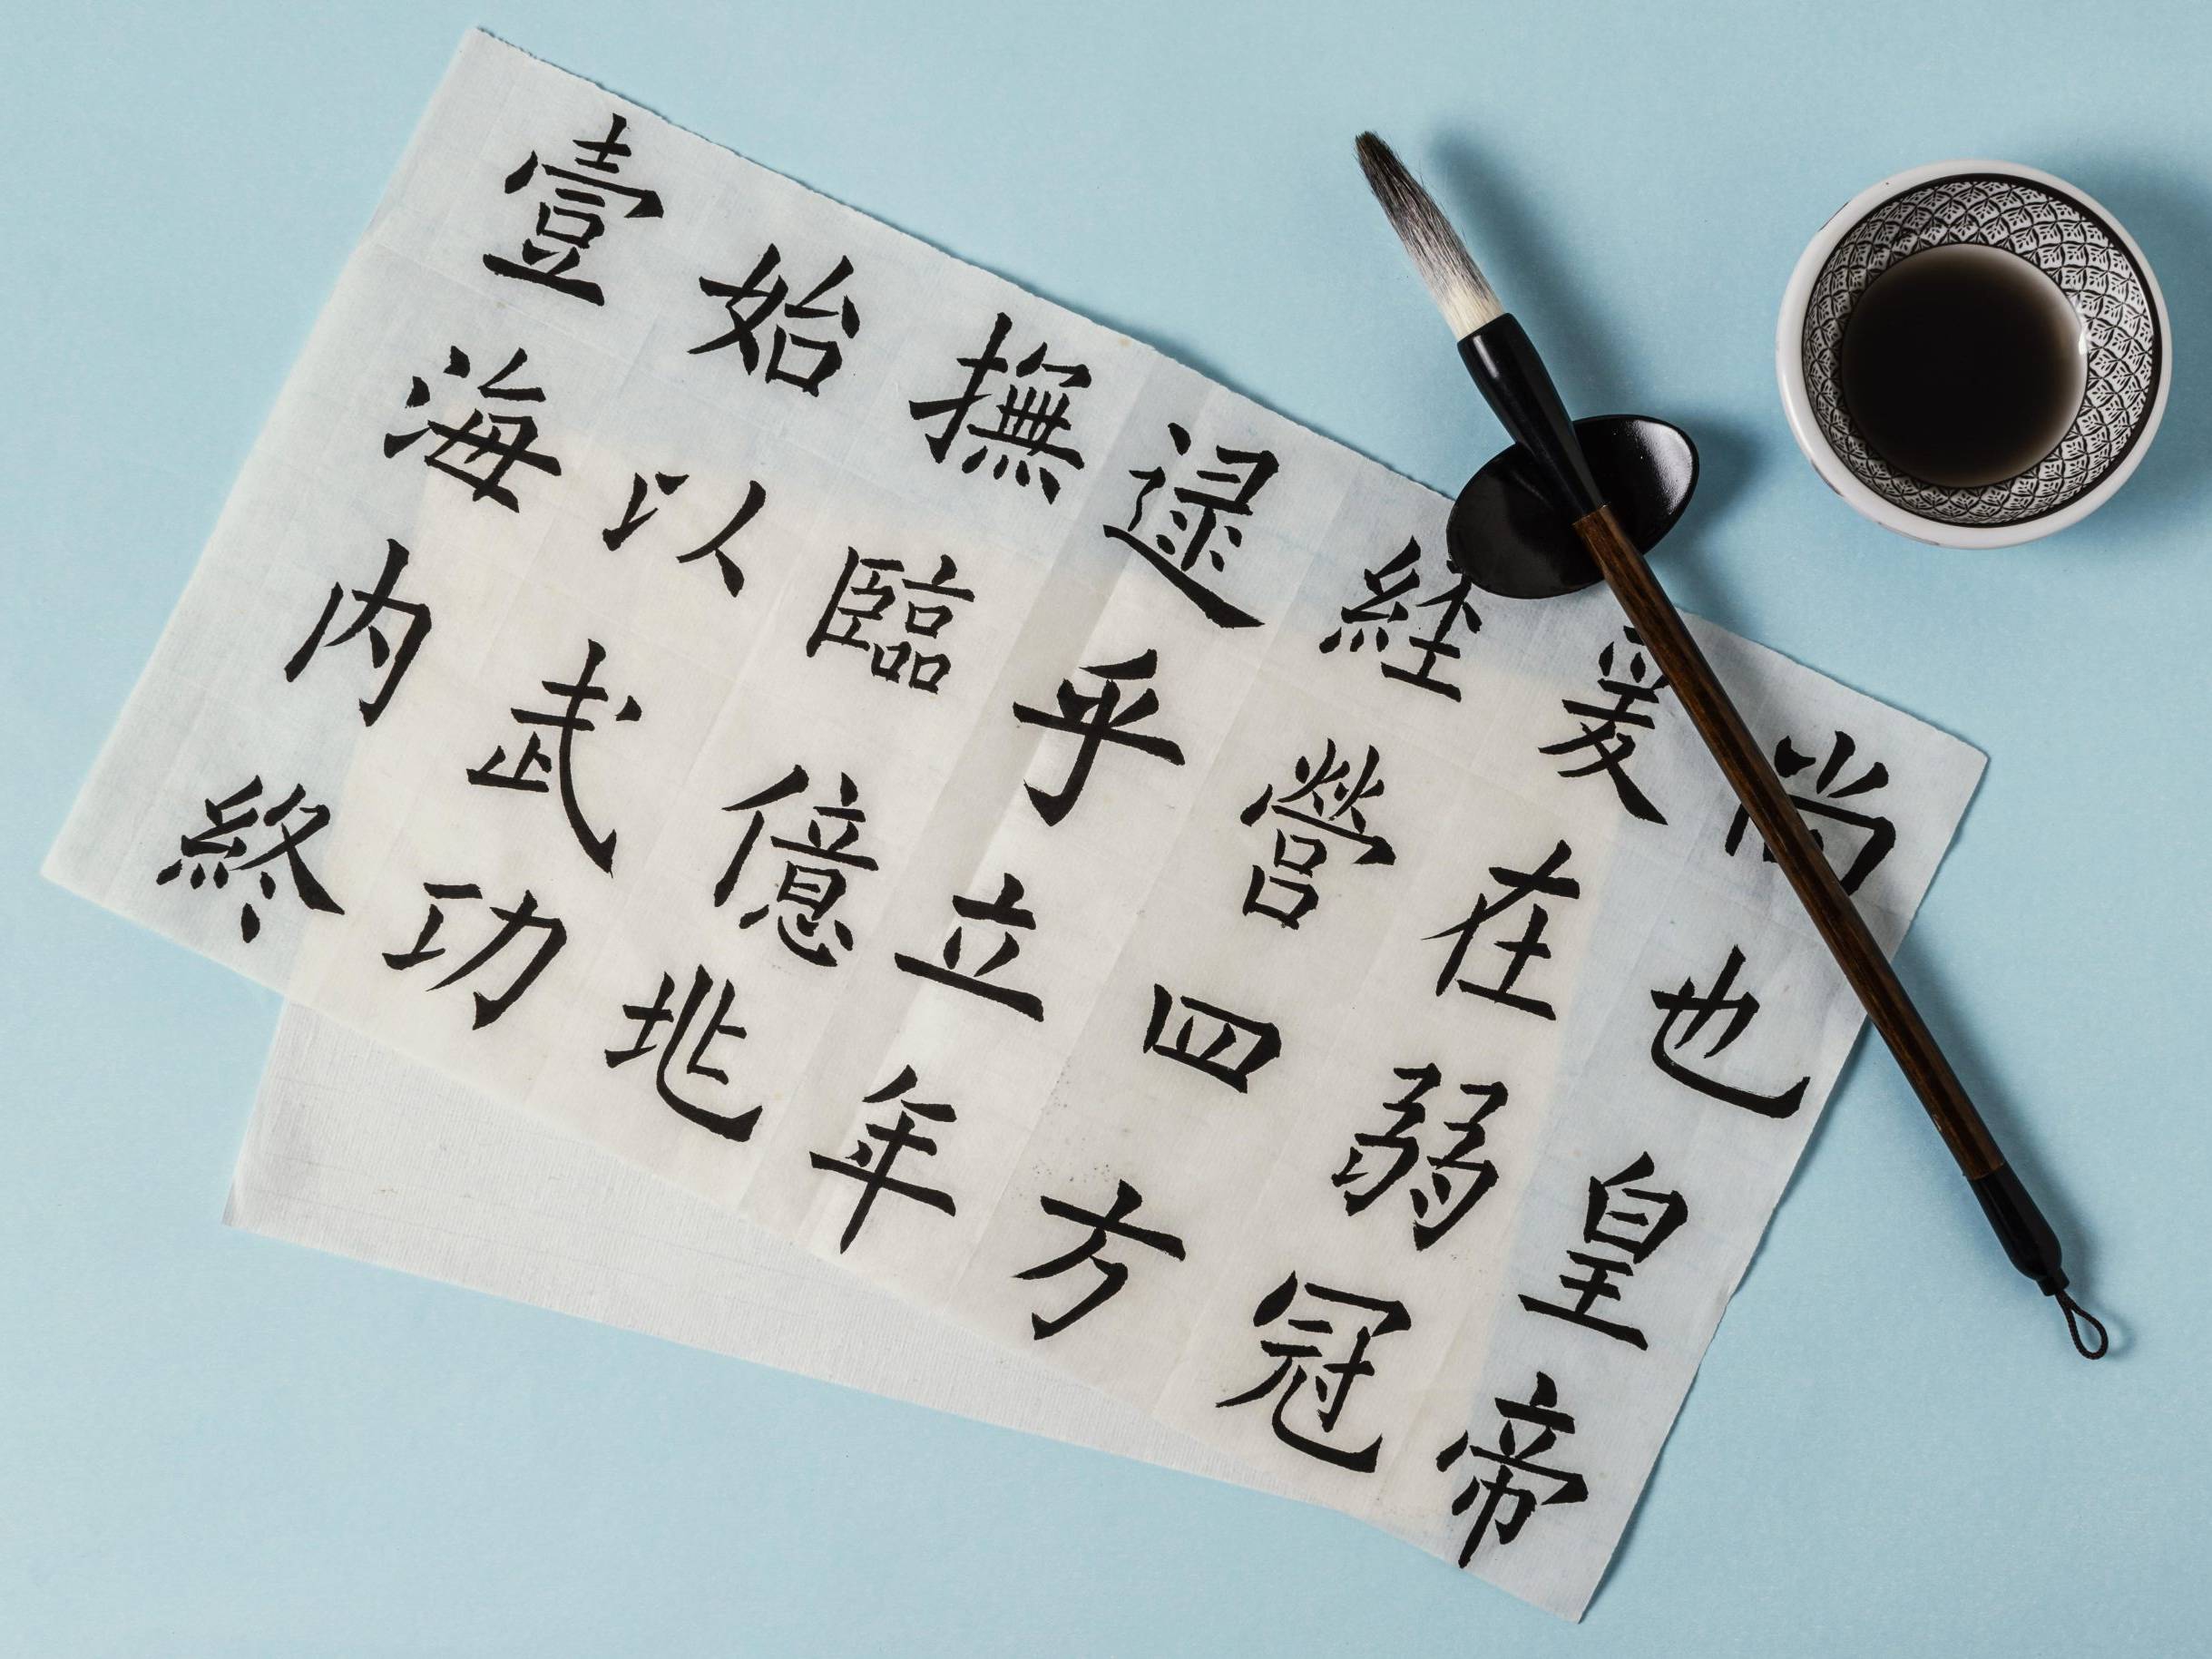 尚也皇帝
爰在弱冠
経營四方
逯乎立年
撫臨億兆
始以武功
壹海内終